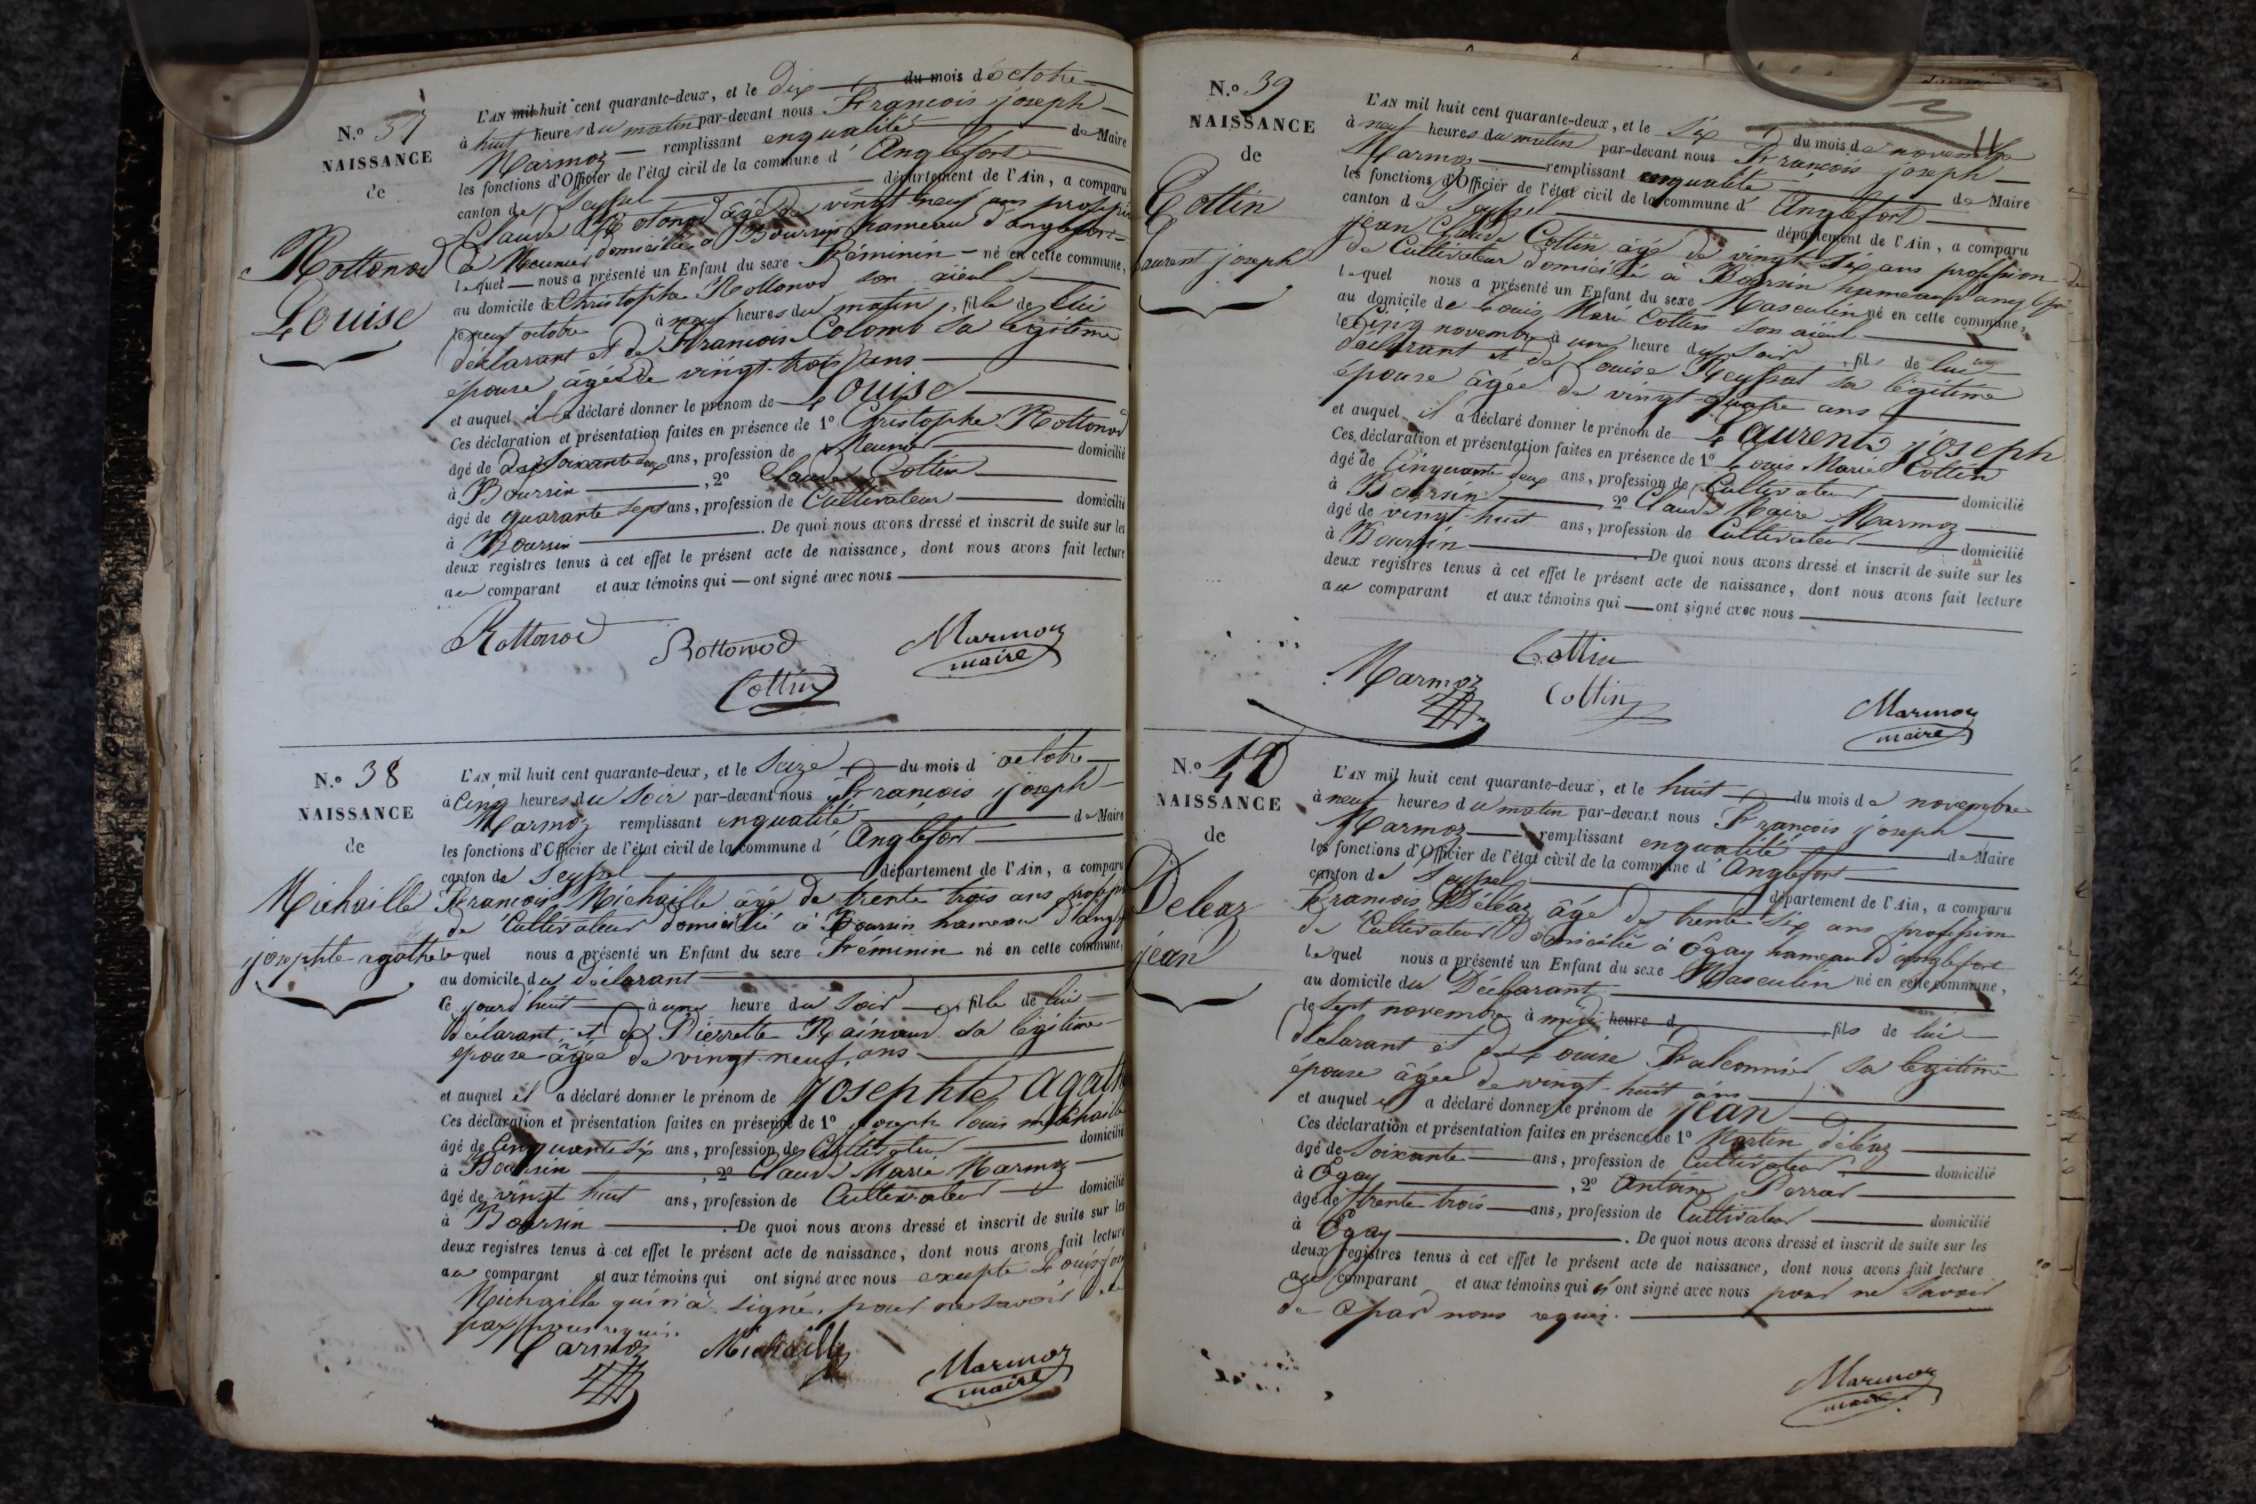 N.o 37
NAISSANCE
de
Rottonod
Louise
L'AN mil huit cent quarante-deux, et le Dix du mois d'octobre
à huit heures du matin par-devant nous François joseph
Marmoz remplissant en qualité de Maire
les fonctions d'Officier de l'état civil de la commune d' Anglefort
canton de Seyssel département de l'Ain, a comparu
Claude Rottonod âgé de vingt neuf ans profession
de Meunier domicilié à Boursin hameau d'anglefort
lequel nous a présenté un Enfant du sexe Féminin né en cette commune,
au domicile de Christophe Rottonod son aïeul
le neuf octobre à neuf heures du matin, fille de lui
déclarant et de François Colomb sa légitime
épouse âgée de vingt trois ans
et auquel il a déclaré donner le prénom de Louise
Ces déclaration et présentation faites en présence de 1o Christophe Rottonod
âgé de soixante deux ans, profession de Meunier domicilié
à Boursin, 2o Claude Cottin
âgé de quarante sept ans, profession de Cultivateur domicilié
à Boursin. De quoi nous avons dressé et inscrit de suite sur les
deux registres tenus à cet effet le présent acte de naissance, dont nous avons fait lecture
au comparant et aux témoins qui ont signé avec nous
Rottonod Rottonod Marmoz
maire
Cottin
N.o 38
NAISSANCE
de
Michaille
josephte agathe
L'AN mil huit cent quarante-deux, et le Seize du mois d'octobre
à Cinq heures du Soir par-devant nous François joseph
Marmoz remplissant en qualité de Maire
les fonctions d'Officier de l'état civil de la commune d' Anglefort
canton de Seyssel département de l'Ain, a comparu
François Michaille âgé de trente trois ans profession
de Cultivateur domicilié à Boursin hameau d'anglef
lequel nous a présenté un Enfant du sexe Féminin né en cette commune,
au domicile du Déclarant
ce jourd'huit à une heure du soir, fille de lui
Déclarant et de Pierrette Rainaud sa légitime
épouse âgée de vingt neuf ans
et auquel il a déclaré donner le prénom de Josephte Agathe
Ces déclaration et présentation faites en présence de 1o joseph louis michaille
âgé de Cinquante Six ans, profession de Cultivateur domicilié
à Boursin, 2o Claude Marie Marmoz
âgé de vingt huit ans, profession de Cultivateur domicilié
à Boursin. De quoi nous avons dressé et inscrit de suite sur les
deux registres tenus à cet effet le présent acte de naissance, dont nous avons fait lecture
au comparant et aux témoins qui ont signé avec nous excepté Louis jos
Michaille qui n'a signé, pour ne savoir de ce
par nous requis.
Marmoz Michaille Marmoz
maire
N.o 39
NAISSANCE
de
Cottin
Laurent joseph
11
L'AN mil huit cent quarante-deux, et le Six du mois de novembre
à neuf heures du matin par-devant nous François joseph
Marmoz remplissant en qualité de Maire
les fonctions d'Officier de l'état civil de la commune d' Anglefort
canton de Seyssel département de l'Ain, a comparu
jean Claude Cottin âgé de vingt Six ans profession
de Cultivateur domicilié à Boursin hameau d'anglefor
lequel nous a présenté un Enfant du sexe Masculin né en cette commune,
au domicile de Louis Marie Cottin son aïeul
le Cinq novembre à une heure du Soir, fils de lui
déclarant et de Louise Reyssat sa légitime
épouse âgée de vingt quatre ans
et auquel il a déclaré donner le prénom de Laurent joseph
Ces déclaration et présentation faites en présence de 1o Louis Marie Cottin
âgé de Cinquante deux ans, profession de Cultivateur domicilié
à Boursin 2o Claude Maire Marmoz
âgé de vingt huit ans, profession de Cultivateur domicilié
à Boursin. De quoi nous avons dressé et inscrit de suite sur les
deux registres tenus à cet effet le présent acte de naissance, dont nous avons fait lecture
au comparant et aux témoins qui ont signé avec nous
Cottin
Marmoz Cottin Marmoz
maire
N.o 40
NAISSANCE
de
Deleaz
jean
L'AN mil huit cent quarante-deux, et le huit du mois de novembre
à neuf heures du matin par-devant nous François joseph
Marmoz remplissant en qualité de Maire
les fonctions d'Officier de l'état civil de la commune d' Anglefort
canton de Seyssel département de l'Ain, a comparu
François Déléaz âgé de trente Six ans profession
de Cultivateur domicilié à Ogay hameau d'anglefort
lequel nous a présenté un Enfant du sexe Masculin né en cette commune,
au domicile du Déclarant
le Sept novembre à midi heure d fils de lui
déclarant et de Louise Falconnier sa légitime
épouse âgée de vingt-huit ans
et auquel il a déclaré donner le prénom de jean
Ces déclaration et présentation faites en présence de 1o Martin Déléaz
âgé de Soixante ans, profession de Cultivateur domicilié
à Ogay, 2o Antoine Perrad
âgé de trente trois ans, profession de Cultivateur domicilié
à Ogay. De quoi nous avons dressé et inscrit de suite sur les
deux registres tenus à cet effet le présent acte de naissance, dont nous avons fait lecture
au comparant et aux témoins qui n'ont signé avec nous pour ne savoir
de ce par nous requis.
Marmoz
maire